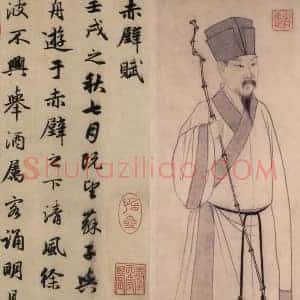 赤壁賦
壬戌之秋七月既望蘇子與
舟遊于赤壁之下清風徐
波不興舉酒屬客誦明月
Shufaziliao.com